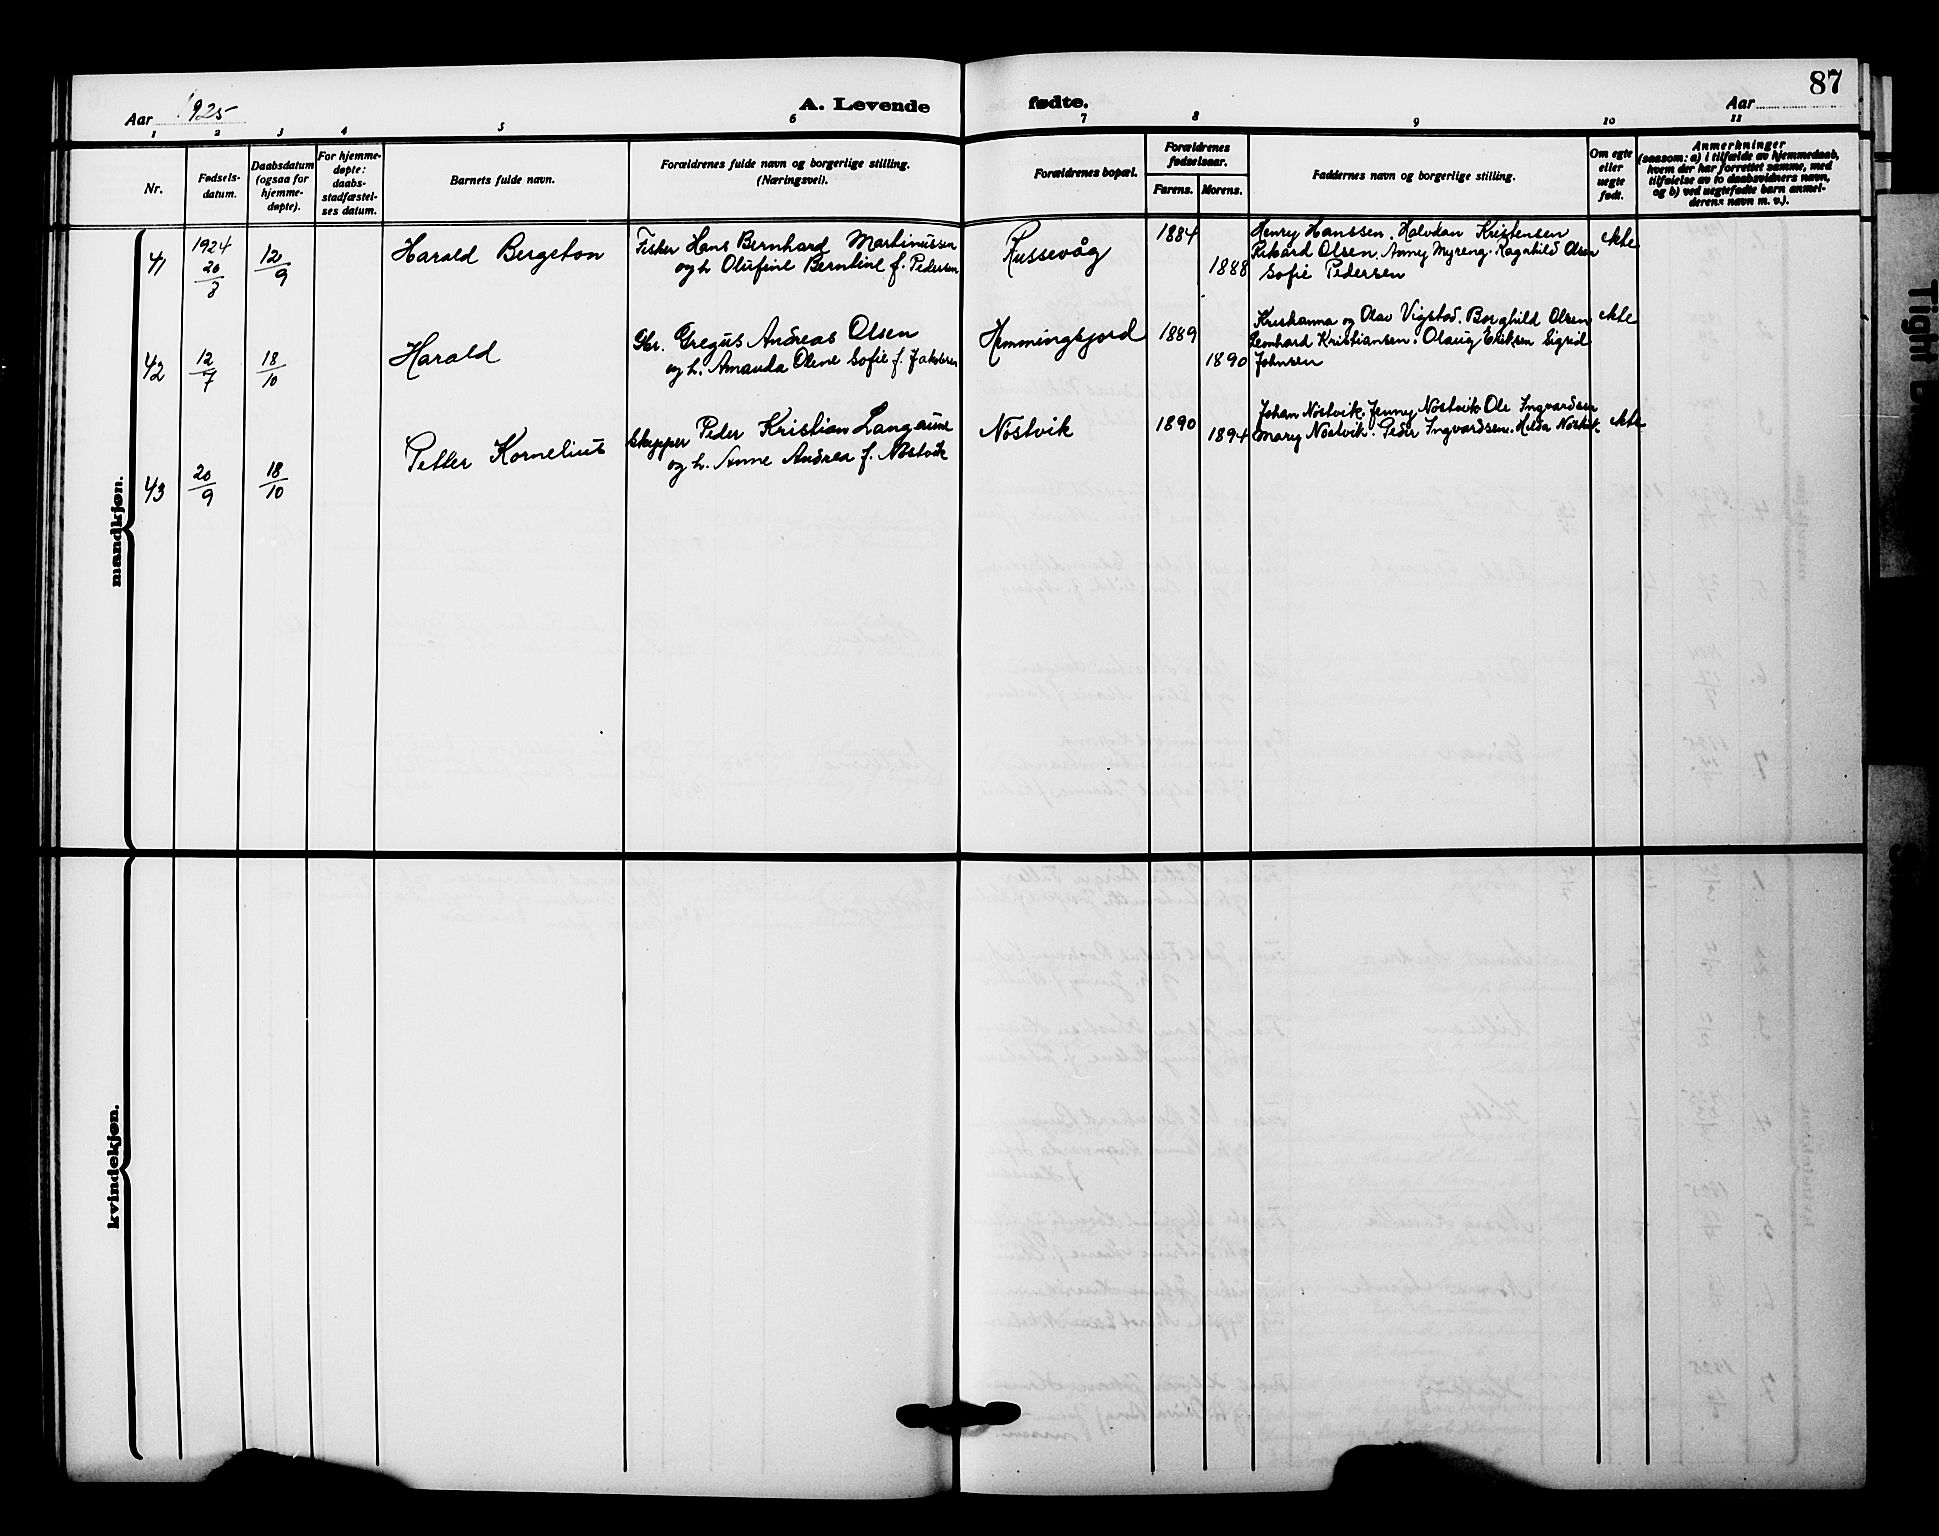 87
Aar 1925
A. Levende fødte.
Aar
1 2 3 4 5 6 7 8 9 10 11
Nr.
Fødsels-
datum.
Daabsdatum
(ogsaa for
hjemme-
døpte).
For hjemme-
døpte:
daabs-
stadfæstel-
ses datum.
Barnets fulde navn.
Forældrenes fulde navn og borgerlige stilling.
(Næringsvei).
Forældrenes bopæl.
Forældrenes
fødselsaar.
Farens. Morens.
Faddernes navn og borgerlige stilling.
Om egte
eller
uegte
født.
Anmerkninger
(saasom: a) i tilfælde av hjemmedaab,
hvem der har forrettet samme, med
tilføielse av to daabsvidners navn,
og b) ved uegtefødte barn anmel-
derens navn m. v.).
mandkjøn.
41
1924
20/8
12/9
Harald Bergeton
Fisker Hans Bernhard Martinussen
og h. Olufine Berntine f. Pedersen
Russevåg
1884
1888
Henry Hanssen. Halvdan Kristensen
Rikard Olsen. Anny Myreng. Ragnhild Olsen
Sofie Pedersen
ekte
42
12/7
18/10
Harald
Gbr. Gregus Andreas Olsen
og h. Amanda Oline Sofie f. Jakobsen
Hemmingsfjord
1889
1890
Kristianna og Olav Vigstad. Borghild Olsen
Leonhard Kristiansen. Olaug Eriksen Sigrid
Johnsen
ekte
43
20/9
18/10
Petter Kornelius
Skipper Peder Kristian Langaune
og h. Anne Andrea f. Nøstvik
Nøstvik
1890
1894
Johan Nøstvik. Jenny Nøstvik. Ole Ingvardsen
Mary Nøstvik. Peder Ingvardsen. Hilda Nøstvik
ekte
kvindekjøn.
Tight